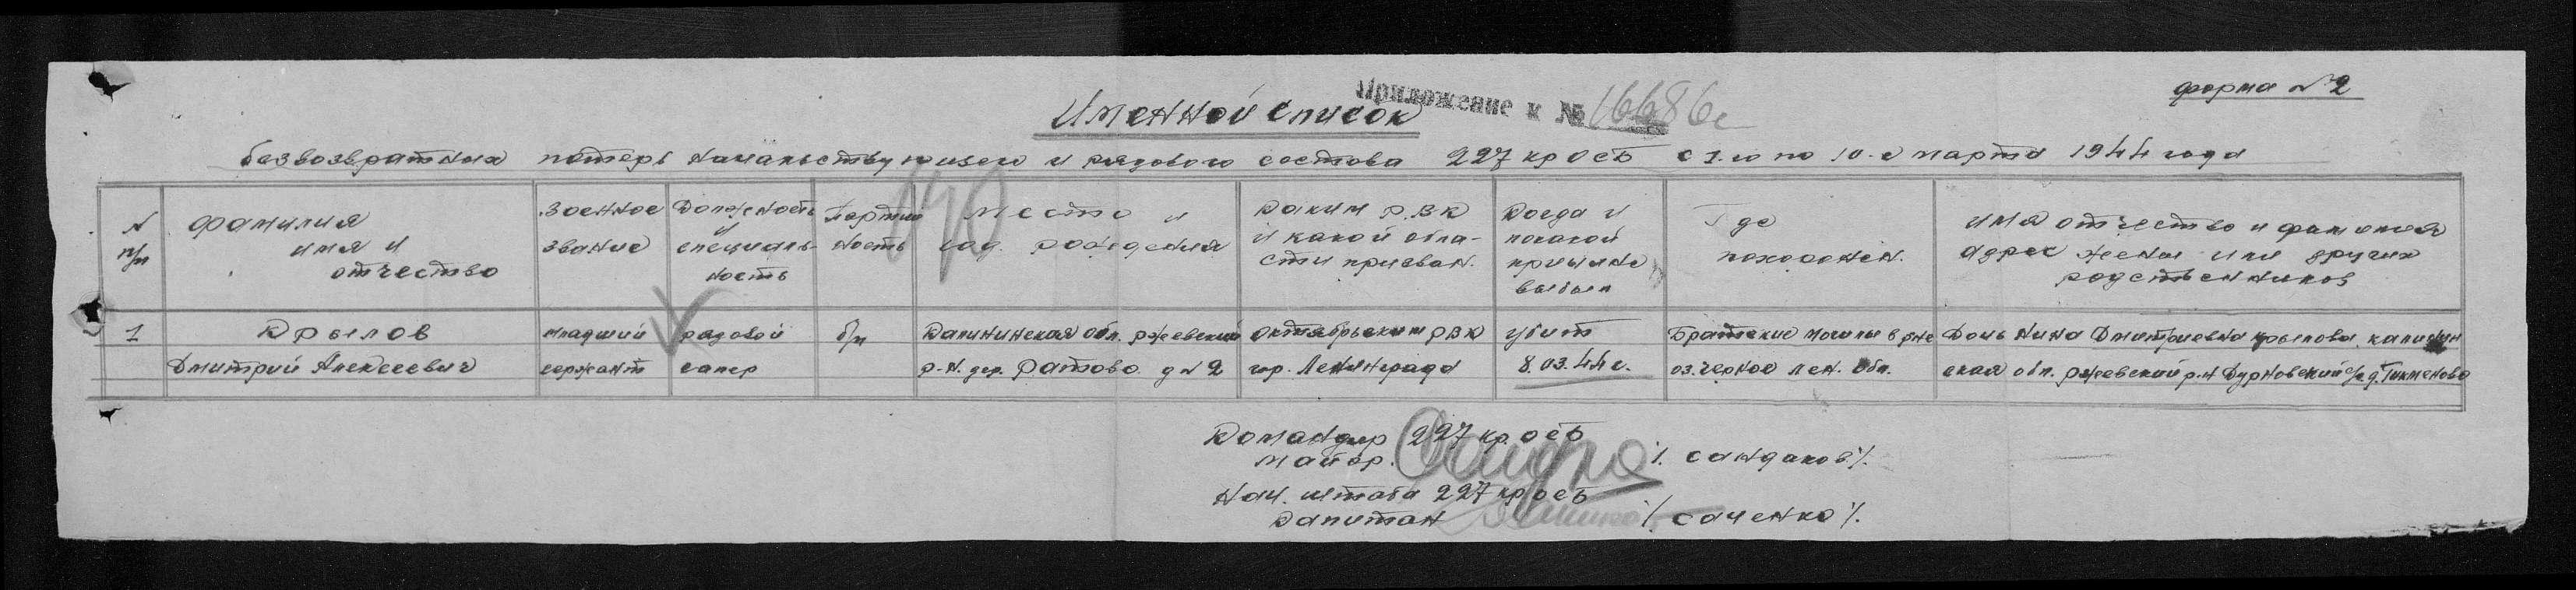 форма № 2
Приложение к № 16686с
Именной список
безвозвратных потерь начальствующего и рядового состава 227 кр осб с 1.го по 10.е марта 1944 года
140
N п/п
фамилия имя и отчество
Военное звание
Должность и специальность
Партийность
Место и год рождения
Каким Р.В.К и какой области призван.
Когда и по какой причине выбыл
Где похоронен.
имя отчество и фамилия адрес жены или других родственников
1 Крылов младший рядовой б/п Калининская обл. Ржевский Октябрьским РВК убит Братские могилы в р-не Дочь Нина Дмитриевна Крылова. Калинин
Дмитрий Алексеевич сержант сапер р-н. дер. Ратово д № 2 гор. Ленинграда 8.03.44 г. оз. Черное Лен. Обл. ская обл. Ржевский р-н Дурновский с/с д.
Командир 227 кр. осб
майор. /. Сандаков /.
Нач. штаба 227 кр осб
Капитан /. Саченко /.